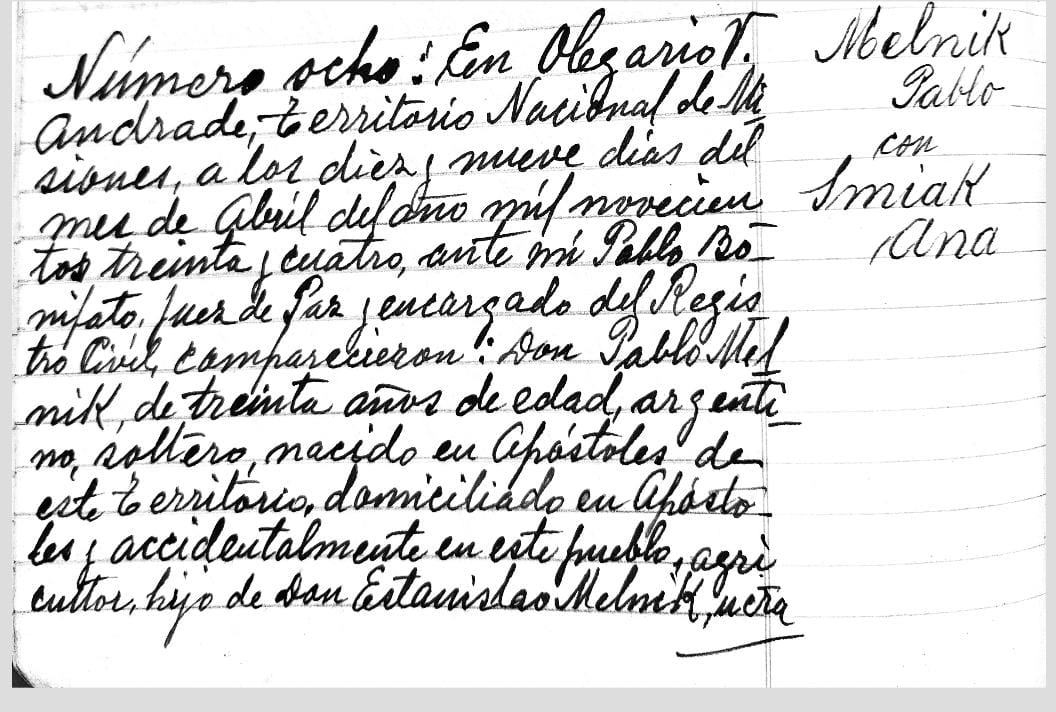 Número ocho: En Olegario V.
Andrade, territorio Nacional de Mi
siones, a los diez y nueve dias del
mes de Abril del año mil novecien
tos treinta y cuatro, ante mi Pablo Bo-
nifato, Juez de Paz y encargado del Regis
tro Civil, comparecieron: Don Pablo Mel
nik, de treinta años de edad, argenti
no, soltero, nacido en Apóstoles de
este territorio, domiciliado en Apósto-
les y accidentalmente en este pueblo, agri
cultor, hijo de Don Estanislao Melnik, ucra
Melnik
Pablo
con
Smiak
Ana